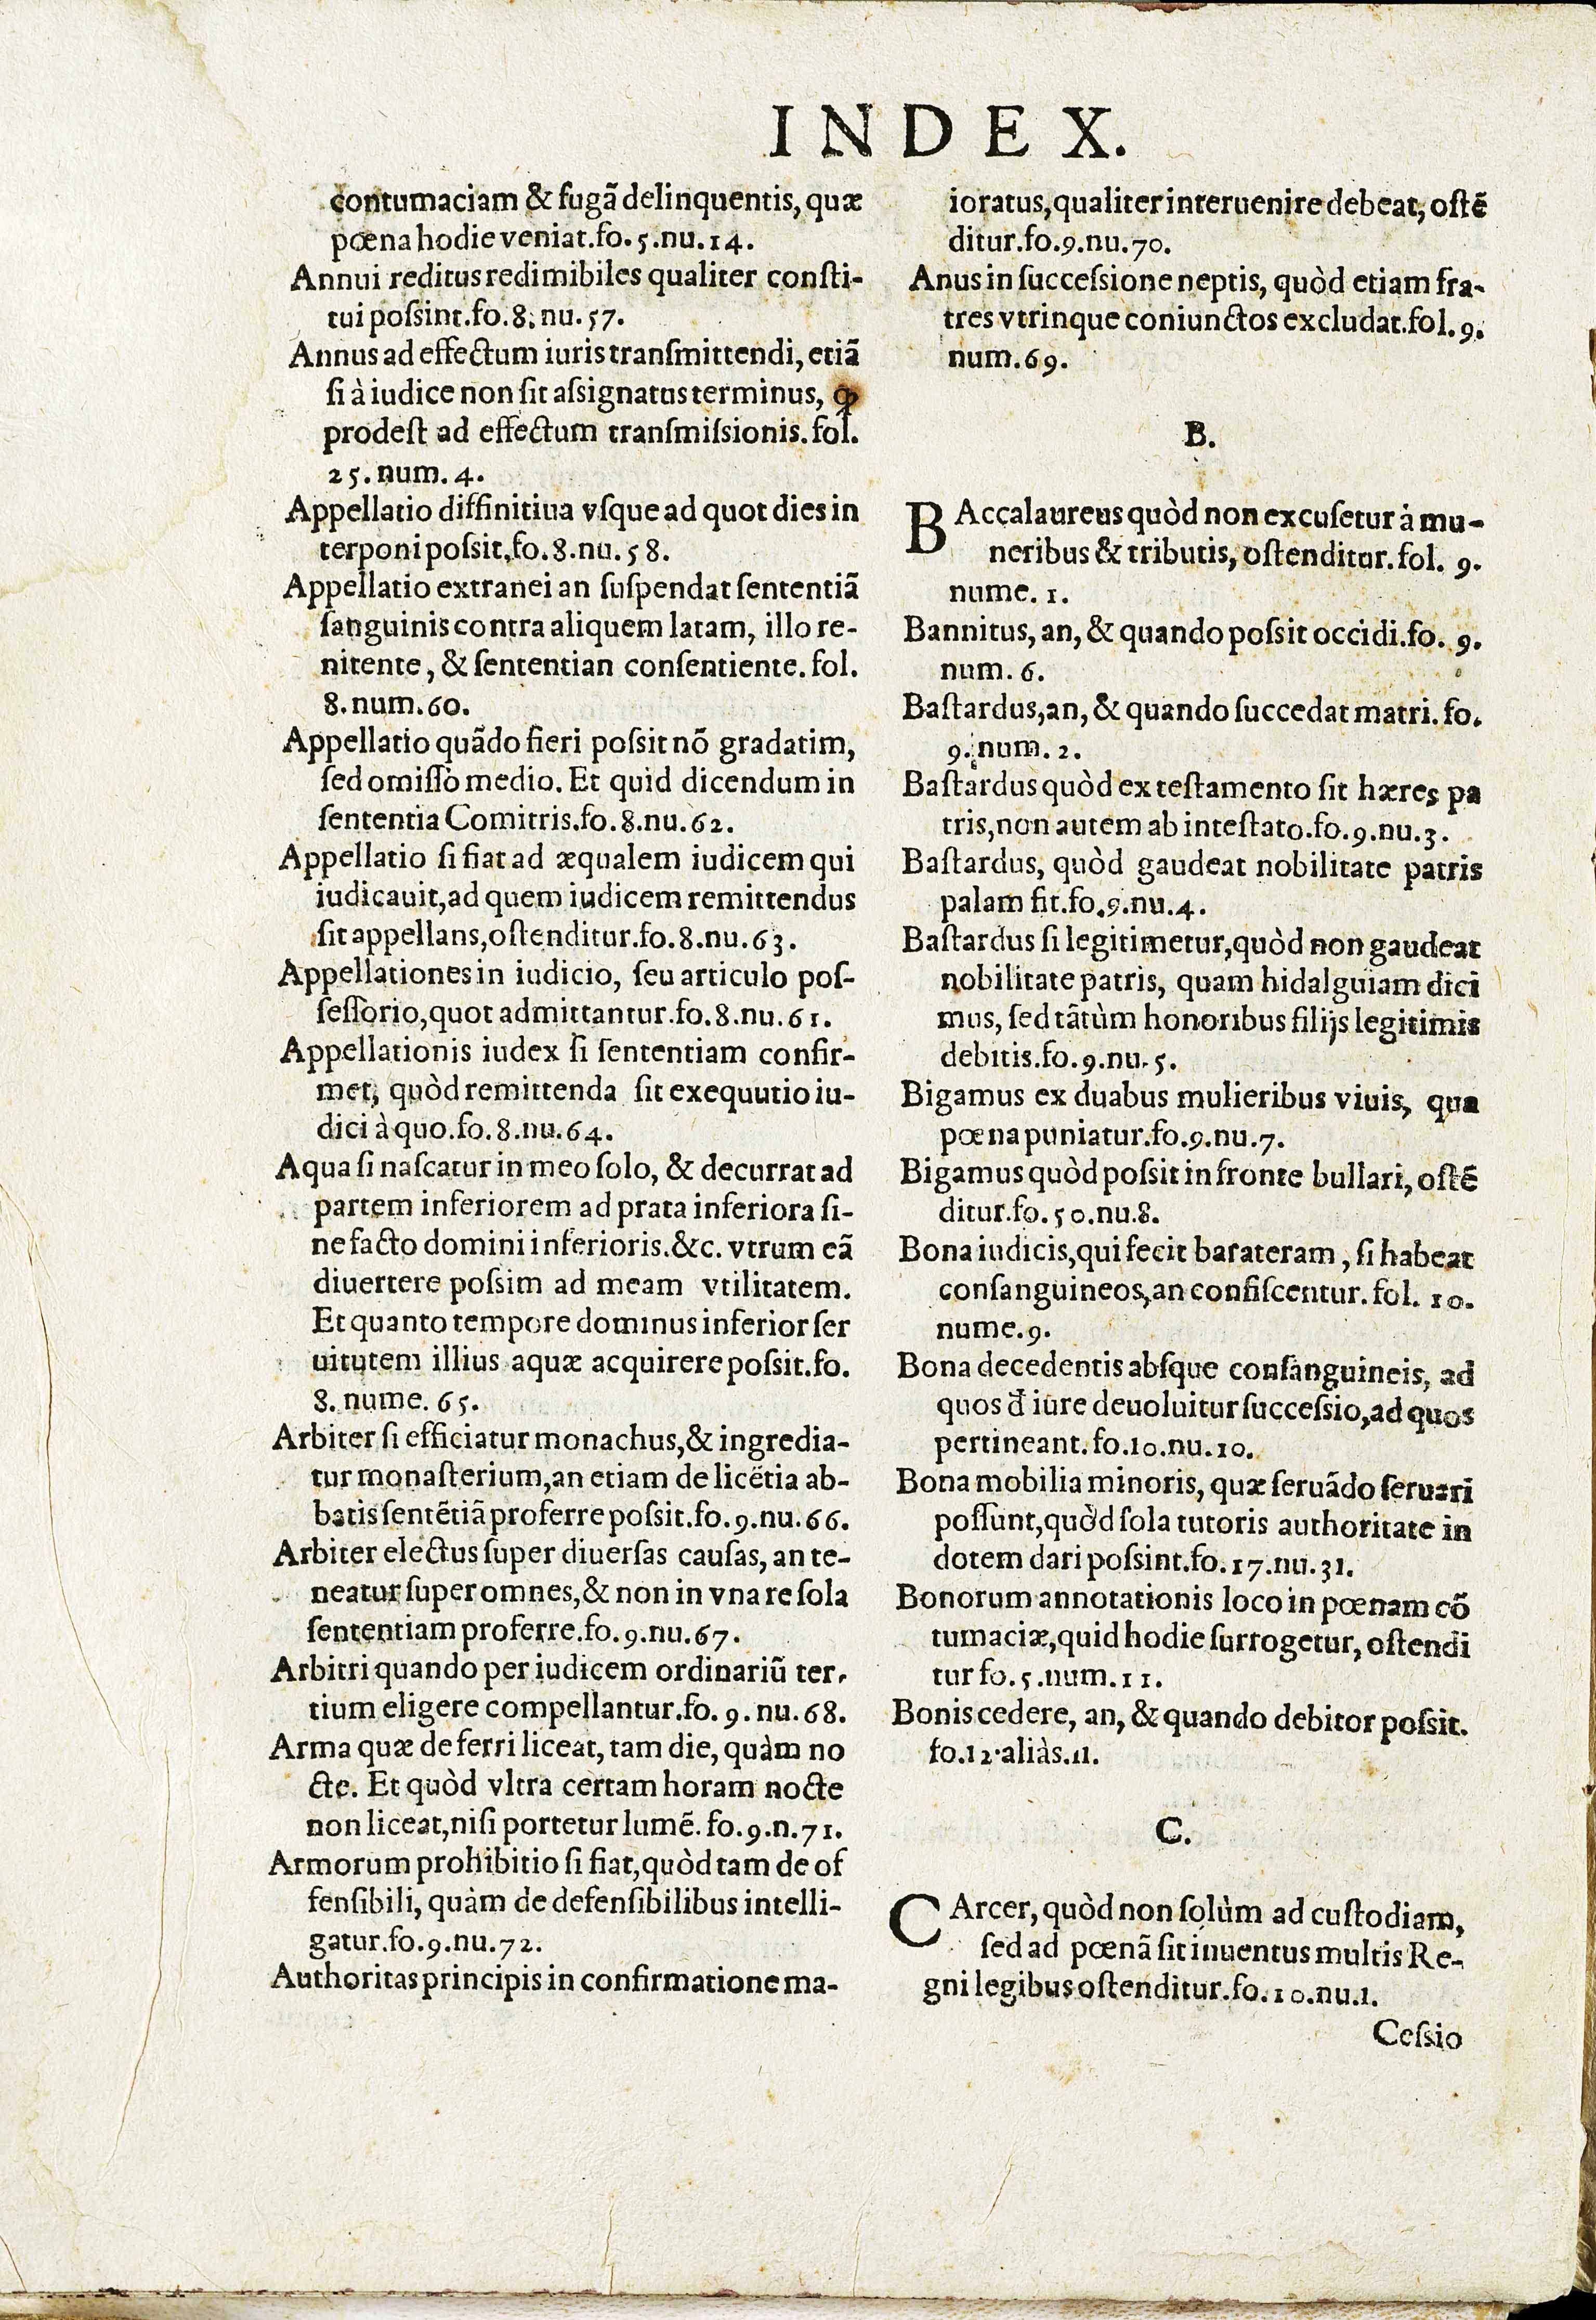 INDEX.
contumaciam & fugã delinquentis, quæ
pœna hodie veniat.fo.5.nu.14.
Annui reditus redimibiles qualiter consti-
tui possint.fo.8.nu.57.
Annus ad effectum iuris transmittendi, etiã
si à iudice non sit assignatus terminus, ꝙ
prodest ad effectum transmissionis.fol.
25.num.4.
Appellatio diffinitiua vsque ad quot dies in
terponi possit.fo.8.nu.58.
Appellatio extranei an suspendat sententiã
sanguinis contra aliquem latam, illo re-
nitente, & sententian consentiente.fol.
8.num.60.
Appellatio quãdo fieri possit nõ gradatim,
sed omisso medio. Et quid dicendum in
sententia Comitris.fo.8.nu.62.
Appellatio si fiat ad æqualem iudicem qui
iudicauit, ad quem iudicem remittendus
sit appellans, ostenditur.fo.8.nu.63.
Appellationes in iudicio, seu articulo pos-
sessorio, quot admittantur.fo.8.nu.61.
Appellationis iudex si sententiam confir-
met, quòd remittenda sit exequutio iu-
dici à quo.fo.8.nu.64.
Aqua si nascatur in meo solo, & decurrat ad
partem inferiorem ad prata inferiora si-
ne facto domini inferioris.&c. vtrum eã
diuertere possim ad meam vtilitatem.
Et quanto tempore dominus inferior ser
uitutem illius aquæ acquirere possit.fo.
8.nume.65.
Arbiter si efficiatur monachus, & ingredia-
tur monasterium, an etiam de licẽtia ab-
batis sentẽtiã proferre possit.fo.9.nu.66.
Arbiter electus super diuersas causas, an te-
neatur super omnes, & non in vna re sola
sententiam proferre.fo.9.nu.67.
Arbitri quando per iudicem ordinariũ ter-
tium eligere compellantur.fo.9.nu.68.
Arma quæ deferri liceat, tam die, quàm no
cte. Et quòd vltra certam horam nocte
non liceat, nisi portetur lumẽ.fo.9.n.71.
Armorum prohibitio si fiat, quòd tam de of
fensibili, quàm de defensibilibus intelli-
gatur.fo.9.nu.72.
Authoritas principis in confirmatione ma-
ioratus, qualiter interuenire debeat, ostẽ
ditur.fo.9.nu.70.
Anus in successione neptis, quòd etiam fra-
tres vtrinque coniunctos excludat.fol.9.
num.69.
B.
BAccalaureus quòd non excusetur à mu-
neribus & tributis, ostenditur.fol. 9.
nume. 1.
Bannitus, an, & quando possit occidi.fo. 9.
num. 6.
Bastardus, an, & quando succedat matri.fo.
9.num. 2.
Bastardus quòd ex testamento sit hæres pa
tris, non autem ab intestato.fo.9.nu.3.
Bastardus, quòd gaudeat nobilitate patris
palam fit.fo.9.nu.4.
Bastardus si legitimetur, quòd non gaudeat
nobilitate patris, quam hidalguiam dici
mus, sed tãtùm honoribus filijs legitimis
debitis.fo.9.nu.5.
Bigamus ex duabus mulieribus viuis, qua
pœna puniatur.fo.9.nu.7.
Bigamus quòd possit in fronte bullari, ostẽ
ditur.fo.50.nu.8.
Bona iudicis, qui fecit barateram, si habeat
consanguineos, an confiscentur.fol. 10.
nume.9.
Bona decedentis absque consanguineis, ad
quos đ iure deuoluitur successio, ad quos
pertineant.fo.10.nu.10.
Bona mobilia minoris, quæ seruãdo seruari
possunt, quòd sola tutoris authoritate in
dotem dari possint.fo.17.nu.31.
Bonorum annotationis loco in pœnam cõ
tumaciæ, quid hodie surrogetur, ostendi
tur fo.5.num.11.
Bonis cedere, an, & quando debitor possit.
fo.12.aliàs.11.
C.
CArcer, quòd non solùm ad custodiam,
sed ad pœnã sit inuentus multis Re-
gni legibus ostenditur.fo.10.nu.1.
Cessio